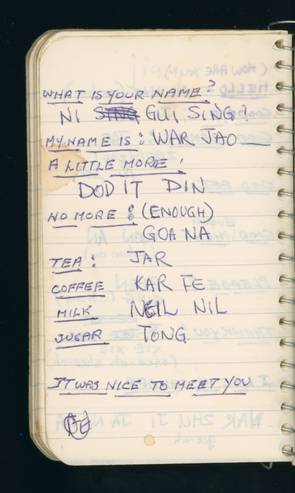 WHAT IS YOUR NAME?
NI GUI SING?
MY NAME IS: WAR JAO
A LITTLE MORE!
DOD IT DIN
NO MORE: (ENOUGH)
GOA NA
TEA: JAR
COFFEE KAR FE
MILK NEIL NIL
SUGAR TONG
IT WAS NICE TO MEET YOU